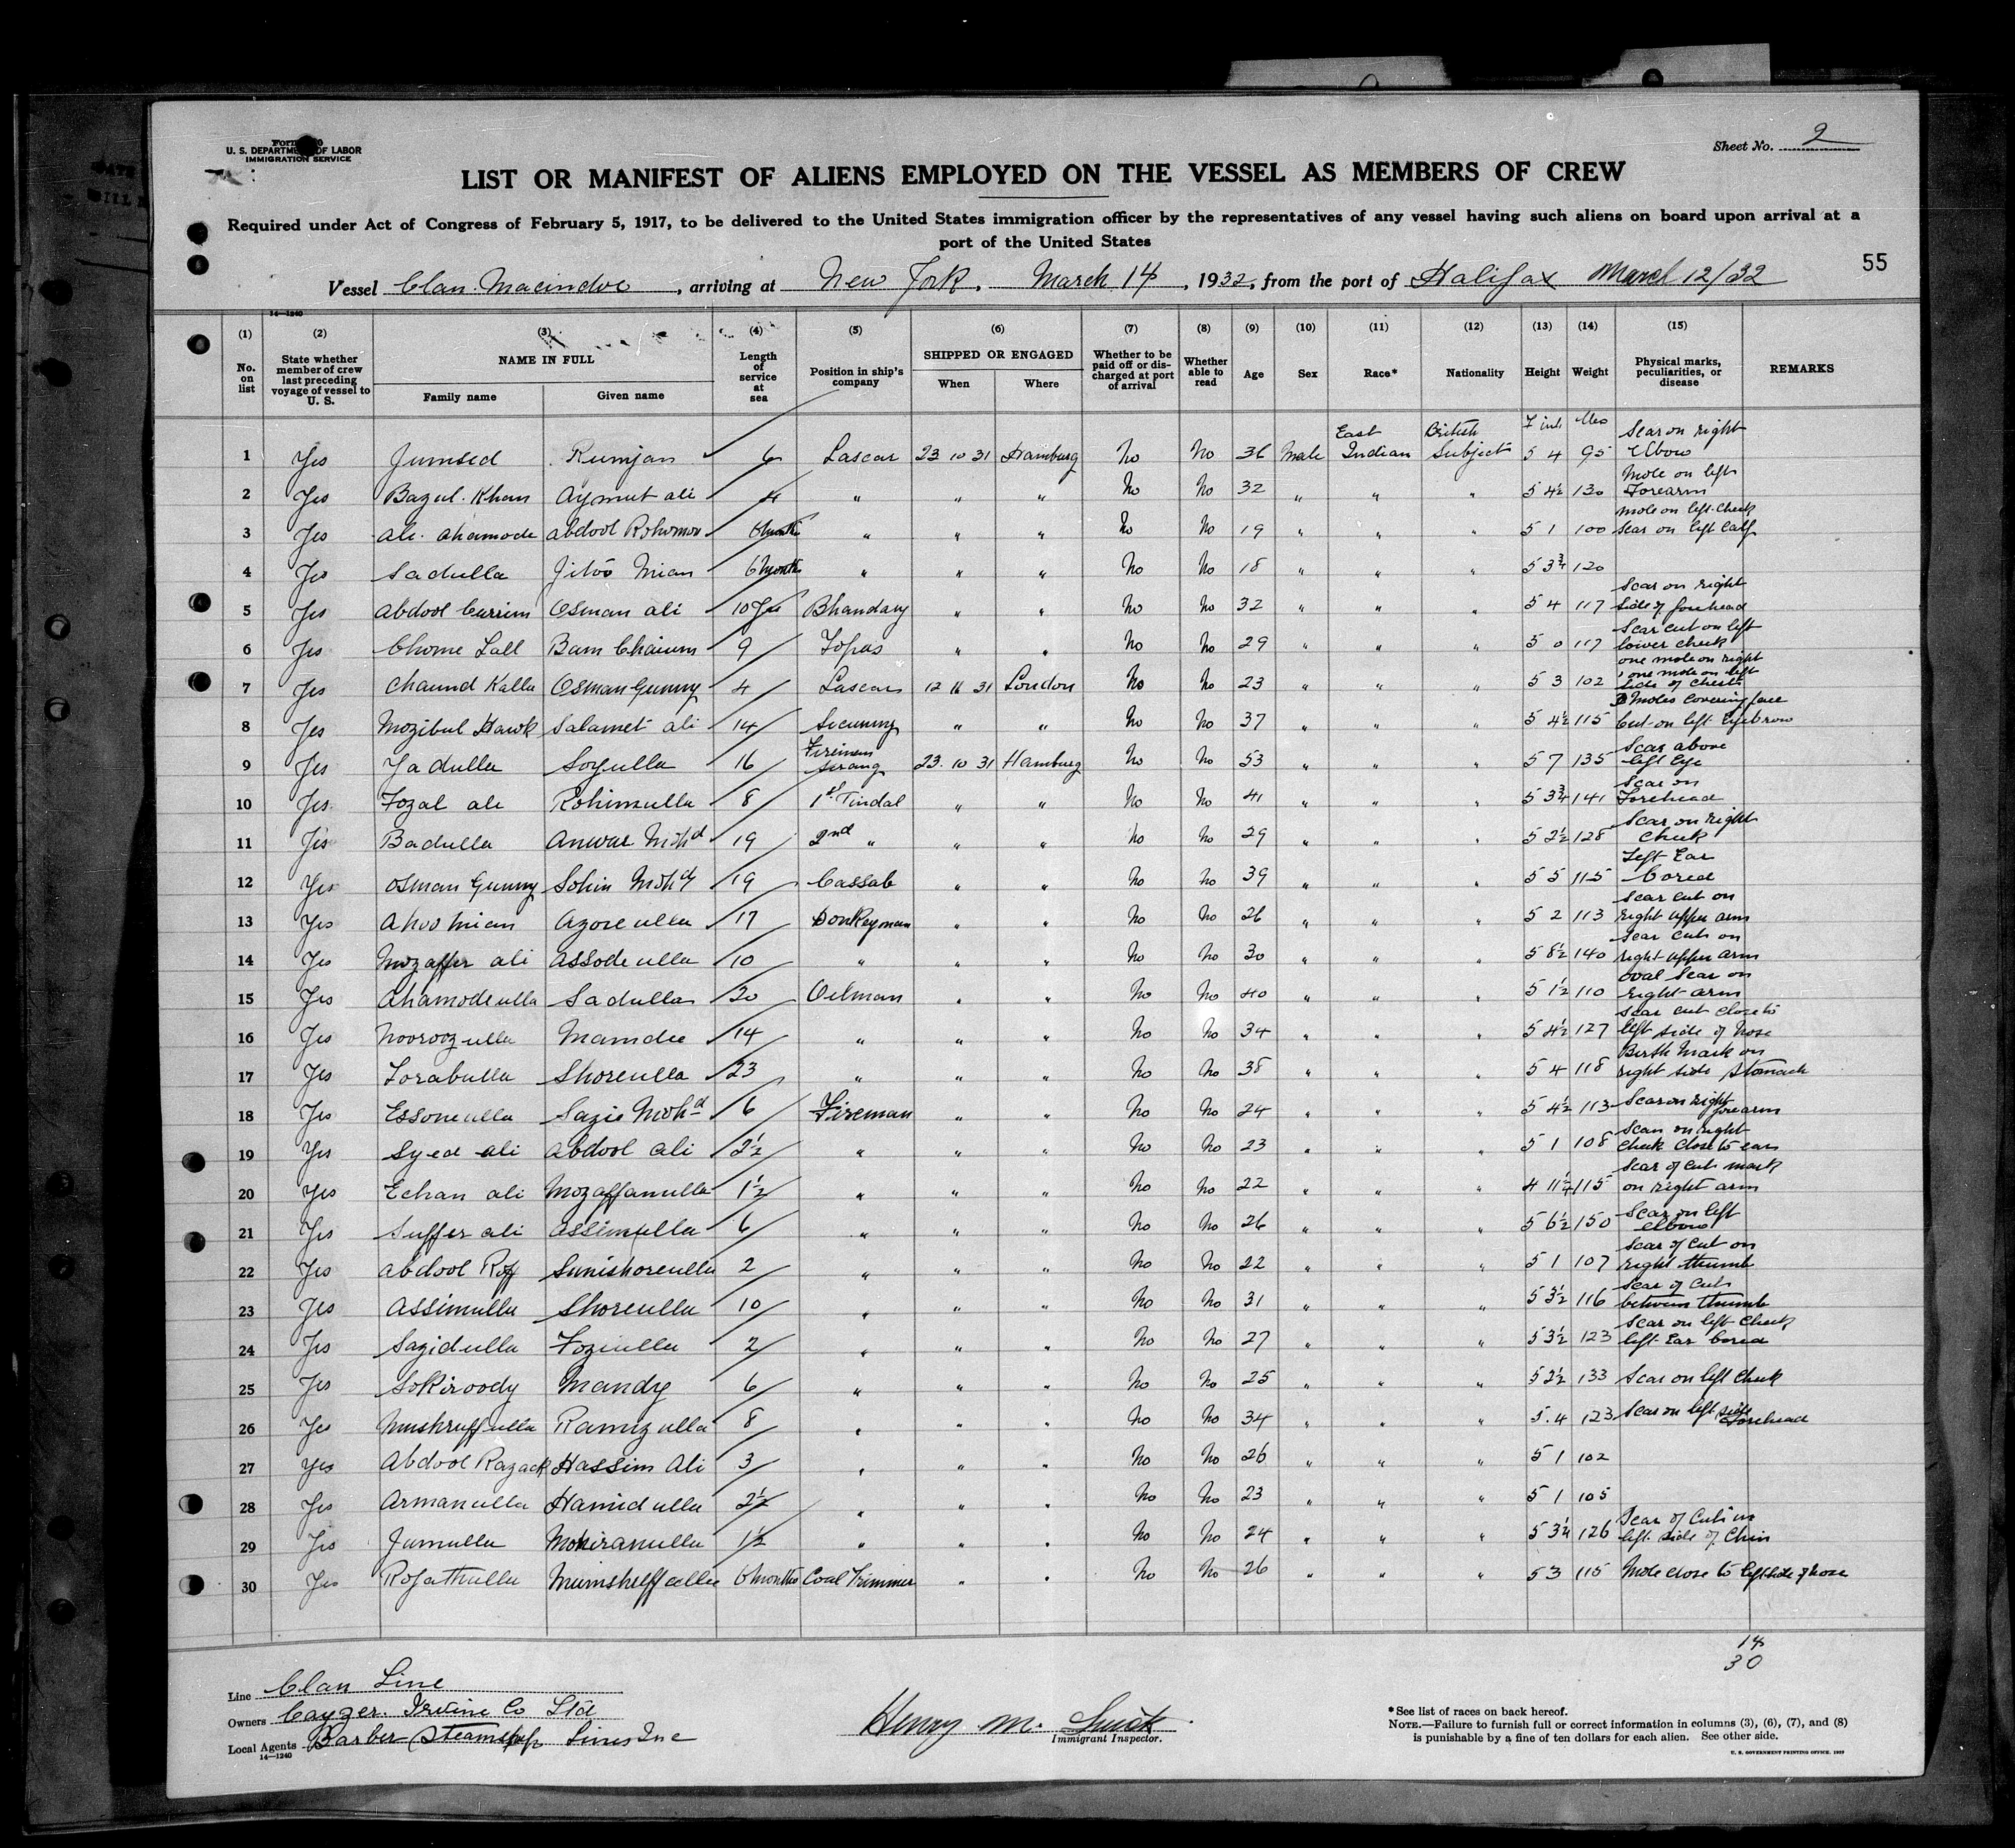 Form
U. S. DEPARTMENT OF LABOR
IMMIGRATION SERVICE
Sheet No. 2
LIST OR MANIFEST OF ALIENS EMPLOYED ON THE VESSEL AS MEMBERS OF CREW
Required under Act of Congress of February 5, 1917, to be delivered to the United States immigration officer by the representatives of any vessel having such aliens on board upon arrival at a
port of the United States
55
Vessel Clan Macindoe, arriving at New York, March 14, 1932, from the port of Halifax March 12/32
14—1240
(1) (2) (3) (4) (5) (6) (7) (8) (9) (10) (11) (12) (13) (14) (15)
No. on list | State whether member of crew last preceding voyage of vessel to U. S. | NAME IN FULL | Family name | Given name | Length of service at sea | Position in ship's company | SHIPPED OR ENGAGED | When | Where | Whether to be paid off or discharged at port of arrival | Whether able to read | Age | Sex | Race* | Nationality | Height | Weight | Physical marks, peculiarities, or disease | REMARKS
1 Yes Jumsed Rumjan 6 Lascar 23 10 31 Hamburg No No 36 Male East Indian British Subject 5 4 95 Scar on right Elbow
2 Yes Bazul Khan Aymut ali 4 " " " No No 32 " " " 5 4½ 130 Mole on left Forearm
3 Yes ali ahamode abdool Rohomon 6 months " " " No No 19 " " " 5 1 100 mole on left cheek scar on left calf
4 Yes Sadulla Mian 6 months " " " No No 18 " " " 5 3¾ 120
5 Yes abdool Currim Osman ali 10 Yrs Bhandary " " No No 32 " " " 5 4 117 Scar on right side of forehead
6 Yes Chome Lall Bam Chaium 9 Topas " " No No 29 " " " 5 0 117 Scar cut on left lower cheek
7 Yes Chaund Kalla Osman Gunny 4 Lascar 12 11 31 London No No 23 " " " 5 3 102 one mole on right, one mole on left side of chest
8 Yes Mozibul Hawk Salamet ali 14 Secunny " " No No 37 " " " 5 4½ 115 3 Moles covering face Cut on left Eyebrow
9 Yes Yadulla Soyulla 16 Firemen Serang 23 10 31 Hamburg No No 53 " " " 5 7 135 Scar above left Eye
10 Yes Fozal ali Rohimulla 8 1st Tindal " " No No 41 " " " 5 3¾ 141 Scar on Forehead
11 Yes Badulla Anwar Mohd 19 2nd " " " No No 29 " " " 5 2½ 128 Scar on right Cheek
12 Yes Osman Gunny Sohin Mohd 19 Cassab " " No No 39 " " " 5 5 115 Left Ear bored
13 Yes Ahoo Mian Azore ulla 17 Donkeyman " " No No 26 " " " 5 2 113 Scar cut on right upper arm
14 Yes Mozaffer ali Assode ulla 10 " " " No No 30 " " " 5 8½ 140 Scar cut on right upper arm
15 Yes Ahamode ulla Sadulla 20 Oilman " " No No 40 " " " 5 1½ 110 oval Scar on right arm
16 Yes Noorooz ulla Mamdu 14 " " " No No 34 " " " 5 4½ 127 Scar cut close to left side of nose
17 Yes Torabulla Shoreulla 23 " " " No No 38 " " " 5 4 118 Birth Mark on right side Stomach
18 Yes Essone ulla Sazie Mohd 6 Fireman " " No No 24 " " " 5 4½ 113 Scar on right forearm
19 Yes Syed ali abdool ali 2½ " " " No No 23 " " " 5 1 108 Scar on right cheek close to ear
20 Yes Echan ali Mozaffamulla 1½ " " " No No 22 " " " 4 11¼ 115 Scar of cut mark on right arm
21 Yes Suffer ali assimulla 6 " " " No No 26 " " " 5 6½ 150 Scar on left elbow
22 Yes abdool Roff Sunishoreulla 2 " " " No No 22 " " " 5 1 107 Scar of Cut on right thumb
23 Yes Assimulla Shoreulla 10 " " " No No 31 " " " 5 3½ 116 Scar of cut between thumb
24 Yes Sazidulla Foziulla 2 " " " No No 27 " " " 5 3½ 123 Scar on left Cheek left Ear bored
25 Yes Sokiroody Mandy 6 " " " No No 25 " " " 5 2½ 133 Scar on left Cheek
26 Yes Mushruff ulla Ramiz ulla 8 " " " No No 34 " " " 5.4 123 Scar on left side Forehead
27 Yes Abdool Razack Hassim Ali 3 " " " No No 26 " " " 5 1 102
28 Yes Armanulla Hamid ulla 2½ " " " No No 23 " " " 5 1 105
29 Yes Jumulla Moniramulla 1½ " " " No No 24 " " " 5 3¼ 126 Scar of Cut in left side of Chin
30 Yes Rofathulla Mumshuffulla 6 months Coal Trimmer " " No No 26 " " " 5 3 115 Mole close to left side of nose
14
30
Line Clan Line
Owners Cayzer. Irvine Co Ltd
Local Agents Barber Steamship Lines Inc
14—1240
Henry M.
Immigrant Inspector.
*See list of races on back hereof.
NOTE.—Failure to furnish full or correct information in columns (3), (6), (7), and (8)
is punishable by a fine of ten dollars for each alien. See other side.
U. S. GOVERNMENT PRINTING OFFICE. 1929